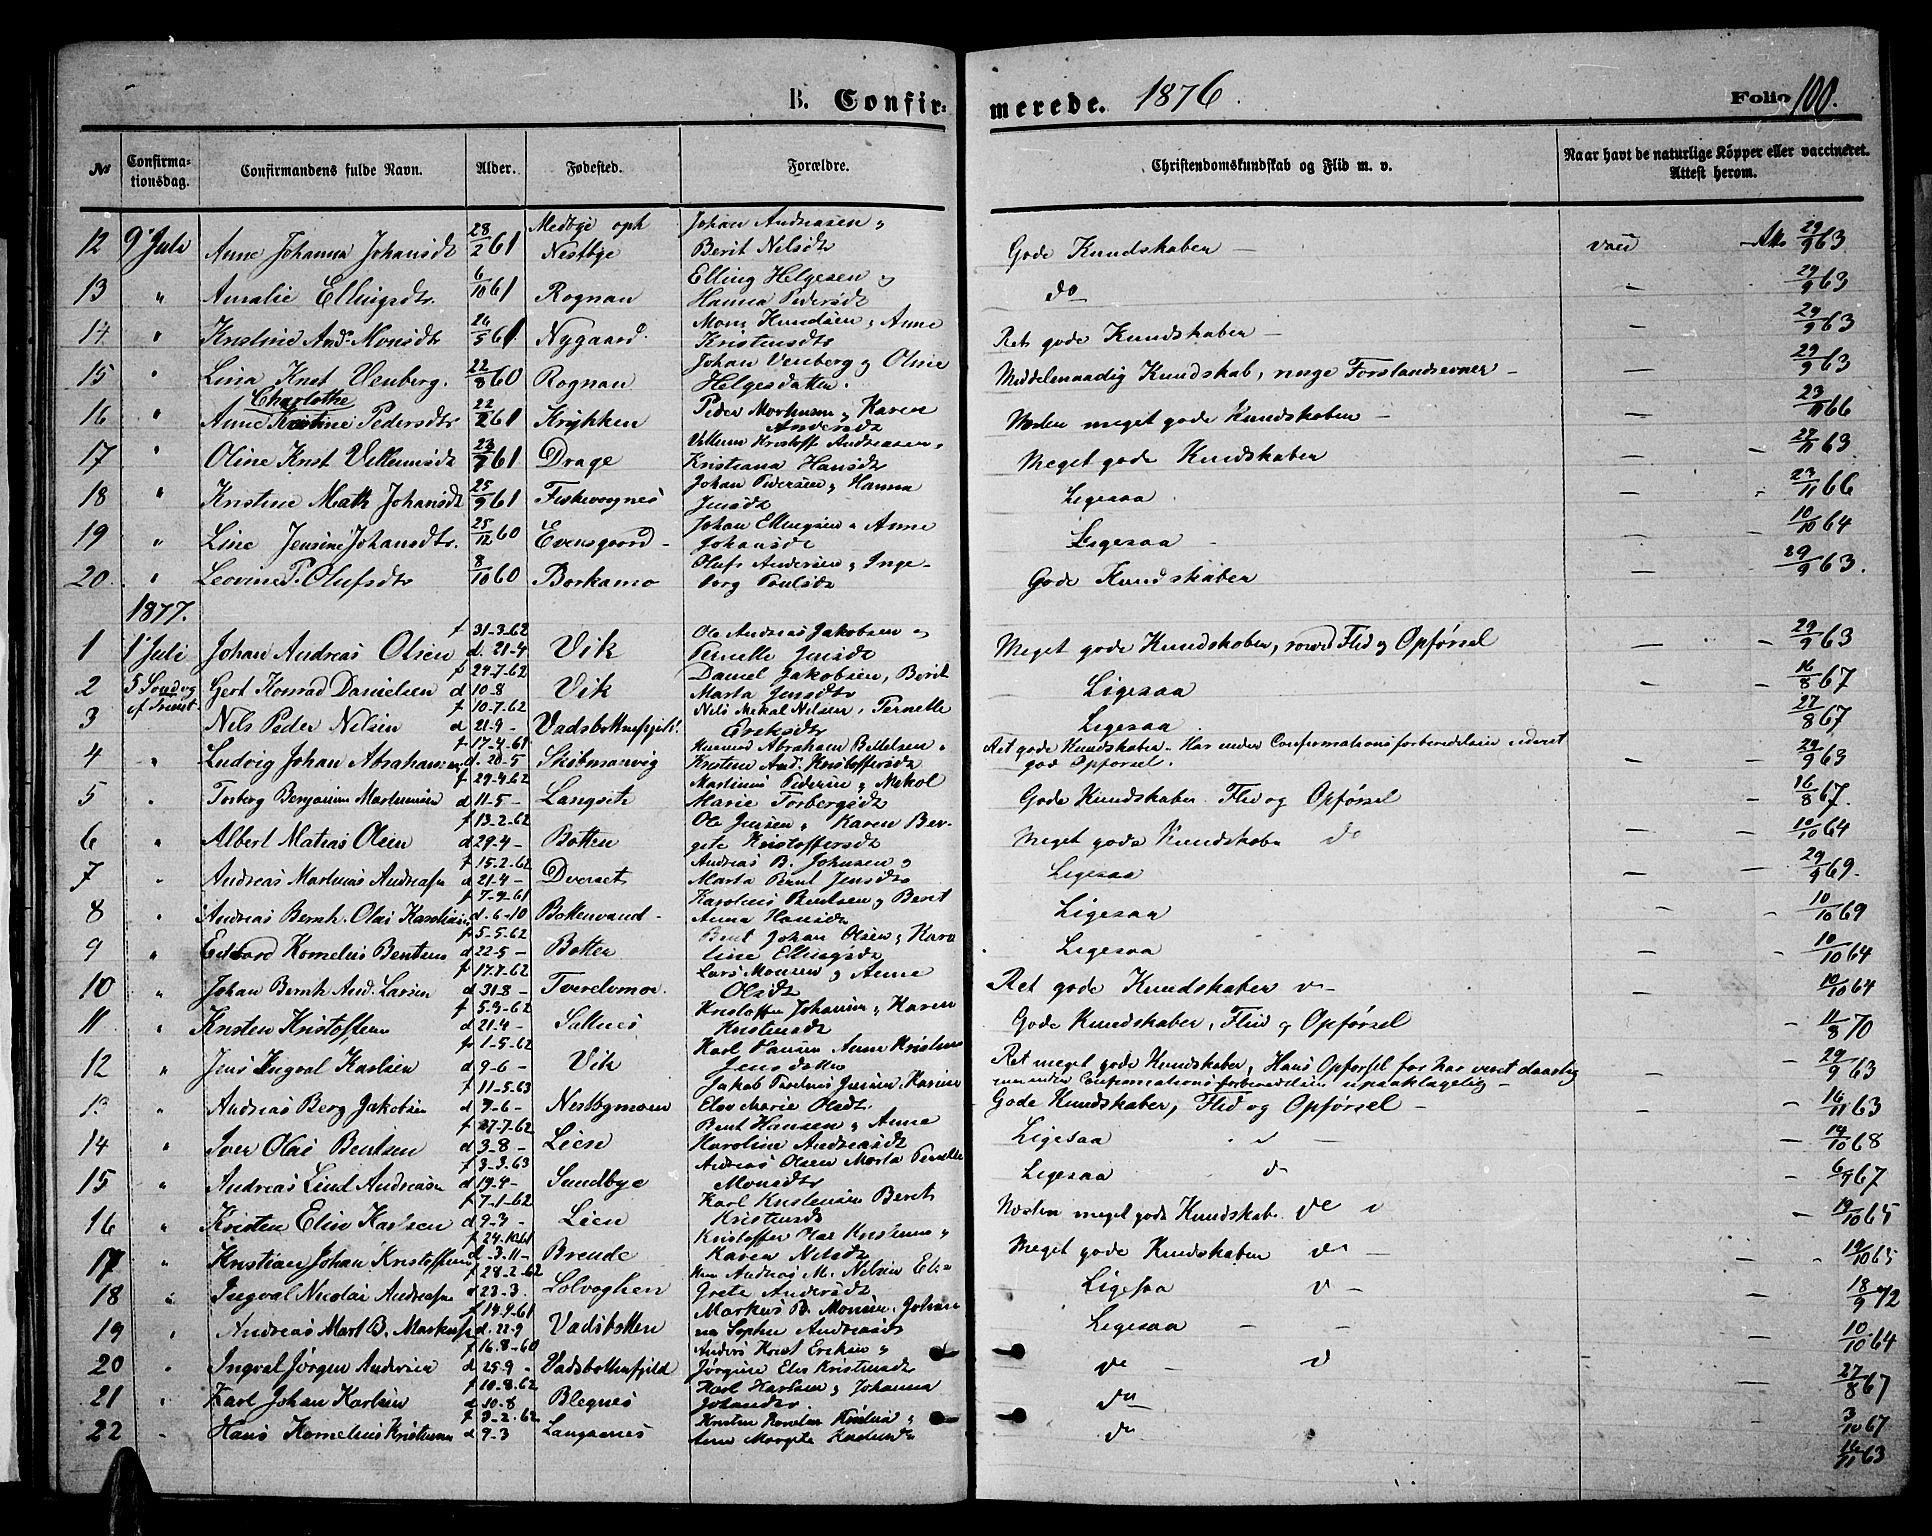 B. Confirmerede. 1876. Folio 100.
No Confirmationsdag. Confirmandens fulde Navn. Alder. Fødested. Forældre. Christendomskundskab og Flid m. v. Naar havt de naturlige Kopper eller vaccineret. Attest herom.
12 9' Juli Anne Johanna Johansdt 28/2 61 Medbye oph Nestbye Johan Andreasen " Berit Nilsdt Gode Kundskaber — 29/9 63
13 " Amalie Ellingsdtr 6/10 61 Rognan Elling Helgesen og Hanna Pedersdt do — 29/9 63
14 " Kristine And. Monsdtr 26/5 61 Nygaard. Mons Knudsen " Anne Kristensdtr Ret gode Kundskaber — 29/9 63
15 " Lina Knst Venberg. 22/8 60 Rognan Johan Venberg og Oline Helgesdatter. Middelmaadig Kundskab, ringe Forstandsevner — 29/9 63
16 " Anne Charlothe Kristine Pedersdtr 22/2 61 Krykken Peder Morhusen " Karen Andersdt Næsten meget gode Kundskaber — 23/11 66
17 " Oline Knst Vellumsdt 23/7 61 Drage Vellum Kristoff Andreasen " Kristiana Hansdt Meget gode Kundskaber — 27/11 63
18 " Kristine Math Johansdt 25/9 61 Fiskevognes Johan Pedersen " Hanna Jensdt Ligesaa — 23/11 66
19 " Line Jensine Johansdtr. 25/12 60 Evensgaard Johan Ellingsen " Anne Johansdt Ligesaa — 10/10 64
20 " Leovine P. Olufsdtr 8/10 60 Borkamo Olufs Andersen " Ingeborg Poulsdt Gode Kundskaber — 29/9 63.
1877.
1 1' Juli Johan Andreas Olsen f 31-3-62 d. 21-4 Vik Ole Andreas Jakobsen og Pernelle Jensdt Meget gode Kundskaber, Flid og Opførsel — 29/9 63
2 5 Søndag ef Trinit. Gert Konrad Danielsen f 24-7-62 d 10-8 Vik Daniel Jakobsen, Berit Marta Jensdtr Ligesaa — 16/8 67
3 Nils Peder Nilsen f 10-7-62 d 21-9 - Vadsbottenfjeld. Nils Mekal Nilsen, Pernelle Eriksdtr Ligesaa 27/8 67
4 " Ludvig Johan Abrahamsen f 17-4-61 d. 20-5 Skibmanvig Abraham Bettelsen " Kristine And. Kristoffersdt Ret gode Kundskaber. Har under Confirmationsforberedelsen udvist god Opførsel. — 29/9 63
5 " Torberg Benjamin Martinusen f 29-4-62 d 11-5 - Langset Martinus Pedersen " Nikol Marie Torbergsdt Gode Kundskaber Flid og Opførsel — 16/8 67.
6 " Albert Matias Olsen f 13-2-62 d 29-4 - Botten Ole Jensen " Karen Bergete Kristoffersdt Meget gode Kundskaber do — 10/10 64
7 Andreas Martinus Andreasen f 15-2-62 d 21-4 - Dverset Andreas B. Johnsen og Marta Bent Jensdt Ligesaa — 29/9 69.
8 " Andreas Bernh. Olai Karolius f 7-9-61 d. 6-10 Bottenvand - Karolius Bentsen og Beret Anna Hansdt Ligesaa — 10/10 69
9 " Edvard Kornelius Bentsen f 5-5-62 d 22-5 - Botten Bent Johan Olsen " Karoline Ellingsdt Ligesaa — 10/10 64
10 " Johan Bernh And. Larsen f 17-7-62 d 31-8 - Tverdvmoe Lars Monsen og Anne Olsdt Ret gode Kundskaber — 10/10 64
11 " Kristen Kristoffersen f 5-3-62 d 21-4 - Saltnes Kristoffer Johansen " Karen Kristensdt Gode Kundskaber, Flid og Opførsel — 11/8 70
12 " Jens Ingval Karlsen f 1-5-62 d 9-6 - Vik Karl Hansen Anne Kristine Jensdatter Ret meget gode Kundskaber, Hans Opførsel før har været daarlig men under Confirmationsforberedelsen upaaklagelig — 29/9 63
13 " Andreas Berg Jakobsen f 11-5-63 d 9-6 - Nestbymoen Jakob Jensen Karine Elen Marie Olsdt. Gode Kundskaber, Flid og Opførsel — 16/11 63
14 " Iver Olai Bentsen f 27-7-62 d 3-8 - Lien Bent Hansen " Anne Karoline Andreasdt Ligesaa — 19/10 68
15 " Andreas Lind Andreasen f 3-3-63 d 19-4 - Sundbye Andreas Olsen Marta Pernelle Monsdtr Ligesaa — 6/9 67
16 " Kristen Elin Karlsen f 7-1-62 d 9-3 - Lien Karl Kristensen Beret Kristensdt Næsten meget gode Kundskab. do — 19/10 65
17 " Kristian Johan Kristoffersen f 24-10 61 d. 3-11 - Brende Kristoffer Olai Kristensen " Karen Nilsdt Meget gode Kundskaber — 19/10 65
18 " Ingval Nicolai Andreasen f 28-2-62 d 23-3. Solvaghen Andreas M. Nilsen Elen Grete Andersdt Ligesaa — 18/9 72
19 " Andreas Mart B. Markusen f 14-9-61 d. 22-9 Vadsbotten Markus B. Monsen, Johanna Sophie Andreasdt Ligesaa — 10/10 64
20 " Ingval Jørgen Andersen f 16-8-60 d 25-9 - Vadsbottenfjeld Anders Knst Eriksen " Jørgine Elen Kristensdt do — 27/8 67
21 " Karl Johan Karlsen f 10-8-62 d 10-8 Blegnes Karl Karlsen og Johanna Johansdtr do — 3/10 67
22 Hans Kornelius Kristensen f 9-2-62 d 9-3 Langaanes Kristen " Ane Margete do 16/11 63